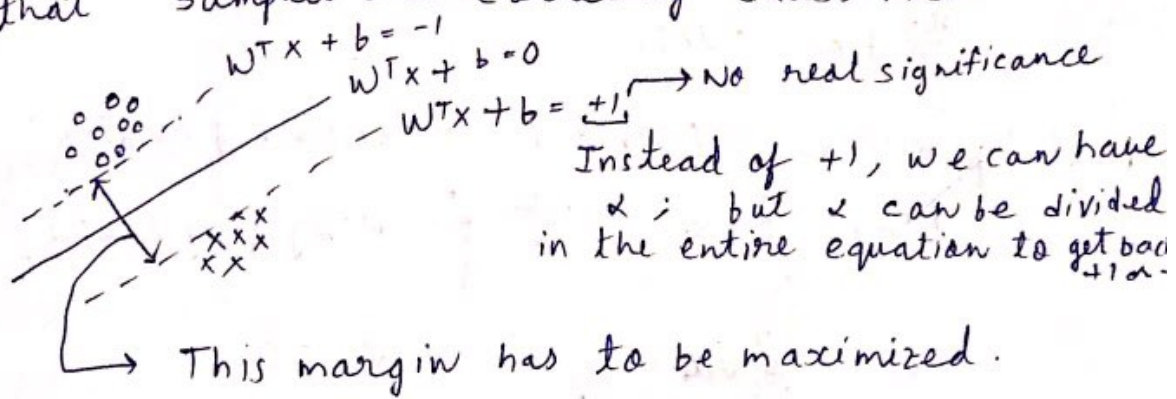 that
WᵀX + b = -1
WᵀX + b = 0
WᵀX + b = +1 → No real significance
Instead of +1, we can have
α ; but α can be divided
in the entire equation to get bac
+1 or -
This margin has to be maximized.